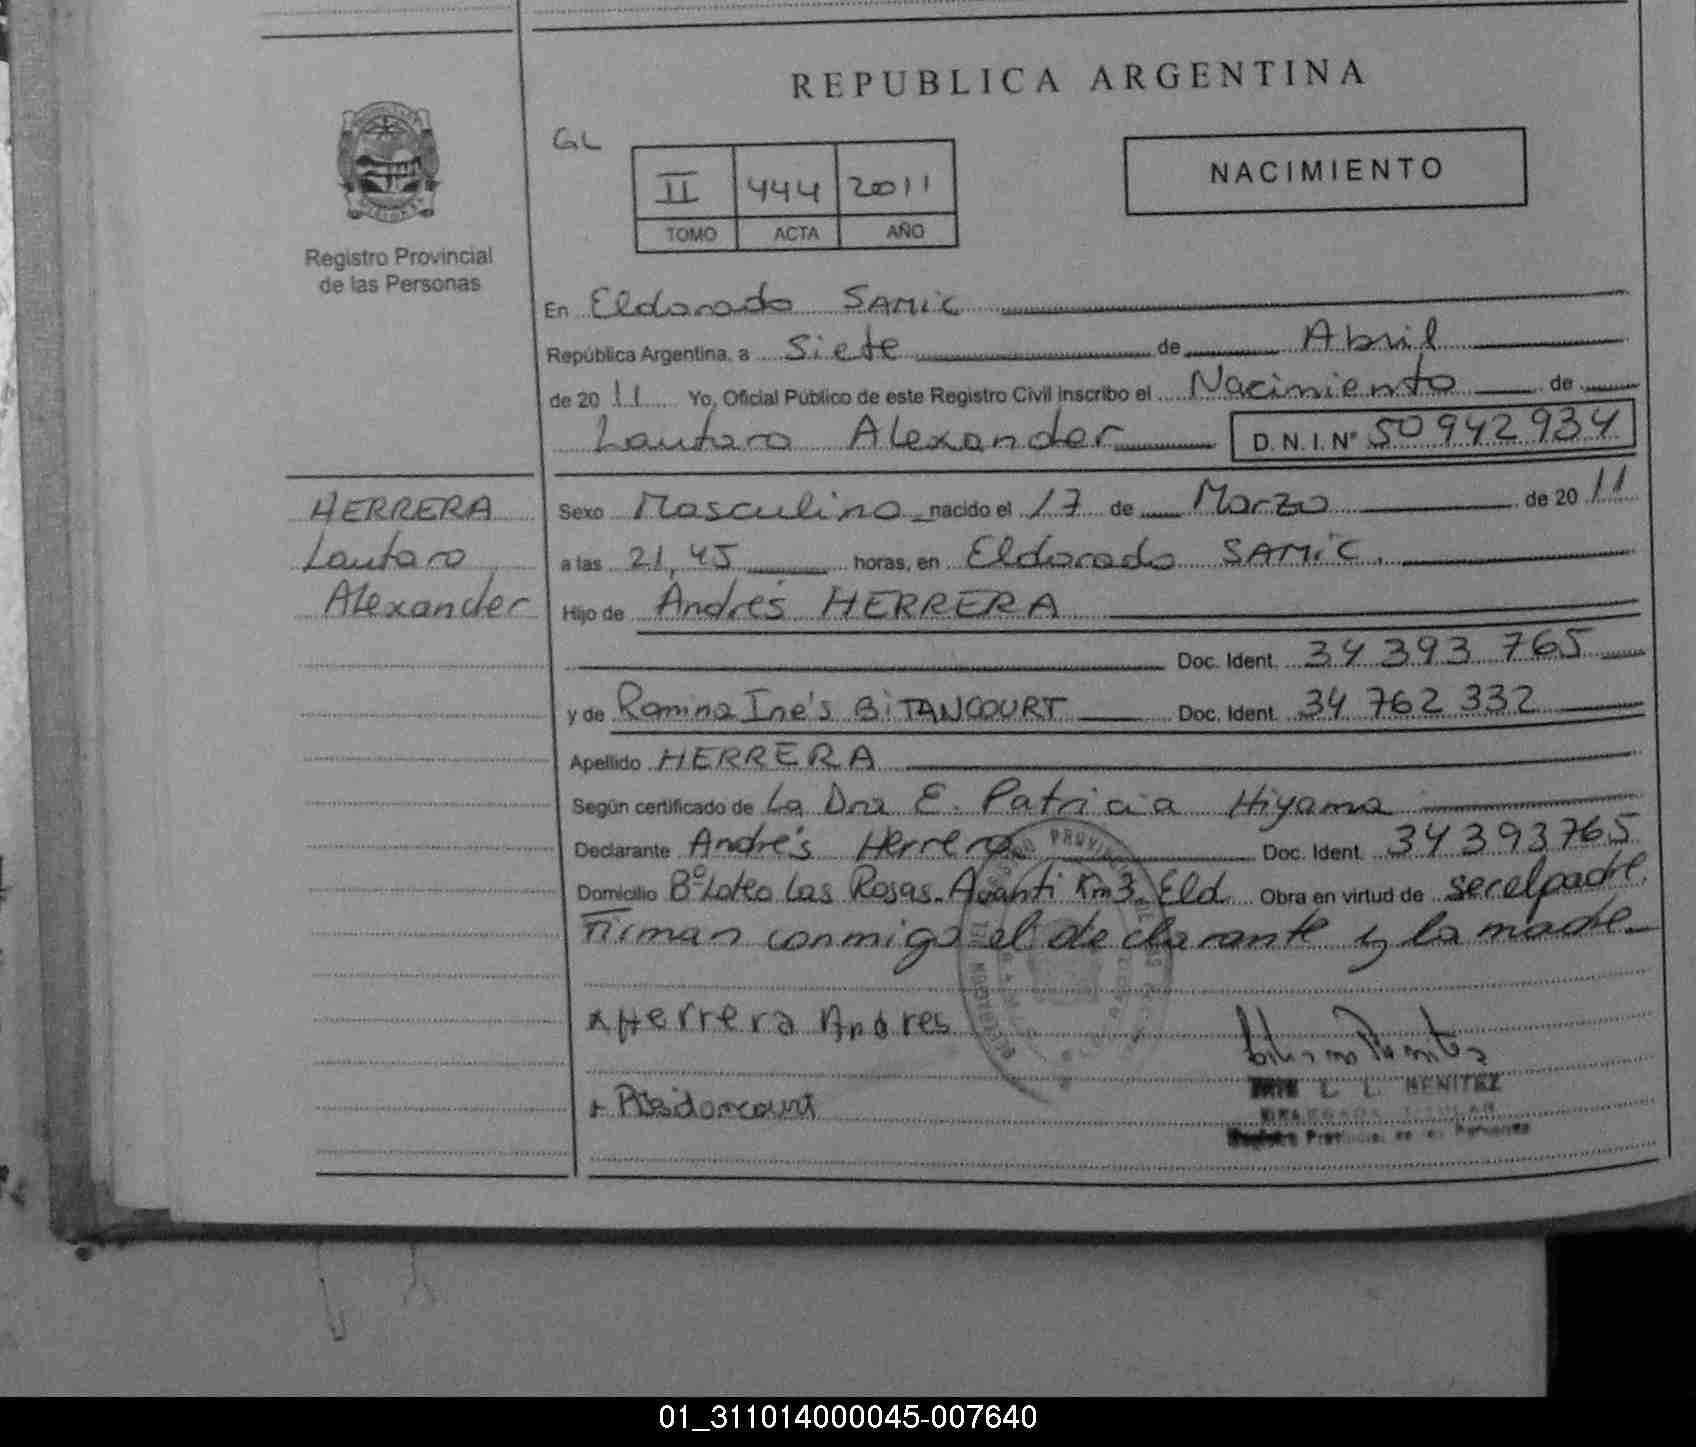 REPUBLICA ARGENTINA
GL
II 444 2011
TOMO ACTA AÑO
NACIMIENTO
Registro Provincial
de las Personas
En Eldorado SAMIC
República Argentina, a Siete de Abril
de 2011 Yo, Oficial Público de este Registro Civil inscribo el Nacimiento de
Lautaro Alexander D.N.I. Nº 50942934
HERRERA
Lautaro
Alexander
Sexo Masculino nacido el 17 de Marzo de 2011
a las 21,45 horas, en Eldorado SAMIC.
Hijo de Andrés HERRERA
Doc. Ident. 34 393 765
y de Romina Inés BITANCOURT Doc. Ident. 34 762 332
Apellido HERRERA
Según certificado de La Dra E. Patricia Hiyama
Declarante Andrés Herrera Doc. Ident. 34393765
Domicilio Bº Loteo Las Rosas. Avanti Km3. Eld. Obra en virtud de ser el padre.
Firman conmigo el declarante y la madre.
x Herrera Andres
L. L. BENITEZ
Registro Provincial de las Personas
01_311014000045-007640